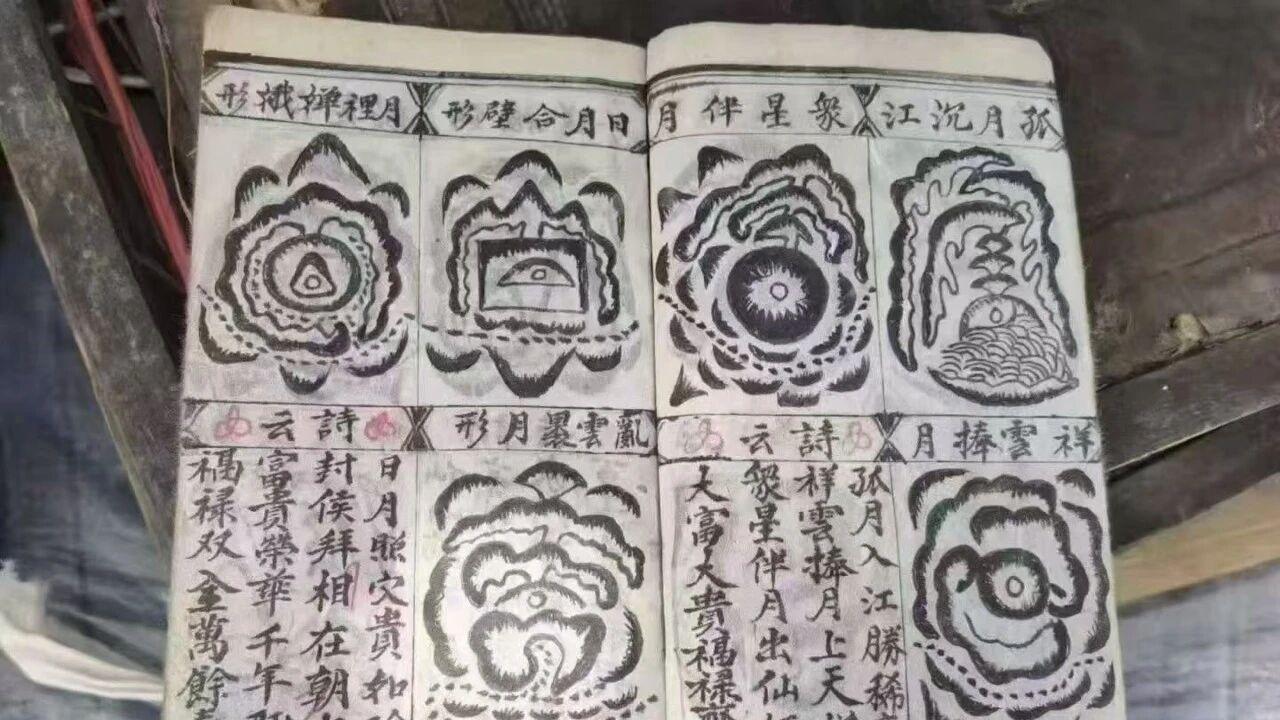 孤月沉江
衆星伴月
祥雲捧月
詩云
孤月入江勝稀
祥雲捧月上天
衆星伴月出仙
大富大貴福禄
日月合璧形
月裡嬋娥形
亂雲裹月形
詩云
日月照穴貴如
封侯拜相在朝
富貴榮華千年
福禄双全萬餘